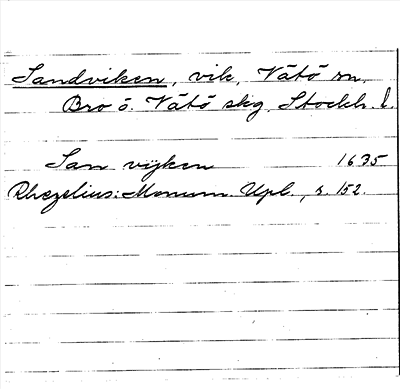 Sandviken, vik, Vätö sn,
Bro o. Vätö skg, Stockh. l.
San vijken 1635
Rhezelius: Monum. Upl., s. 152.